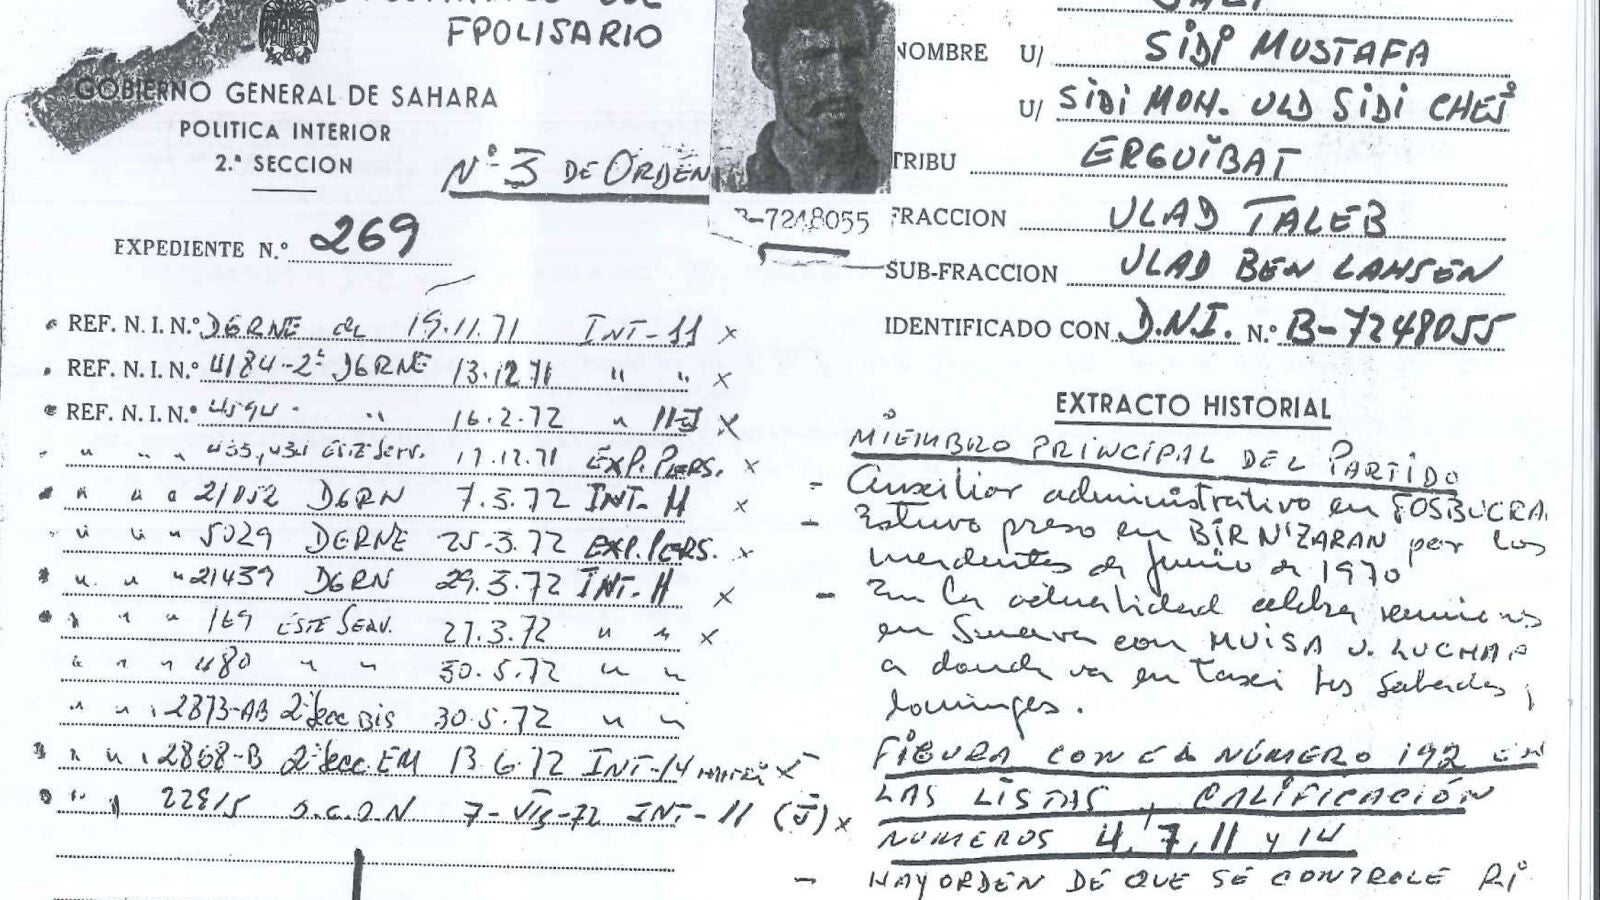 FPOLISARIO
GOBIERNO GENERAL DE SAHARA
POLITICA INTERIOR
2.ª SECCION
Nº 3 DE ORDEN
EXPEDIENTE N.º 269
REF. N. I. N.º DGRNE de 19.11.71 INT-11 x
REF. N. I. N.º 4184-2ª DGRNE 13.12.71 " " x
REF. N. I. N.º " 16.2.72 " x
" " " ESTE Serv. 17.12.71 EXP. PERS. x
" " " 21052 DGRN 7.3.72 INT-11 x
" " " 5029 DGRNE 25-3.72 EXP. PERS. x
" " " 21439 DGRN 29.3.72 INT-11 x
" " " 169 ESTE SERV. 27.3.72 " " x
" " " 480 " " 30.5.72 " "
" " 2873-AB 2ª Secc BIS 30.5.72 " "
" " 2868-B 2ª Secc. EM 13.6.72 INT-14 x
" " 22815 7-VIII-72 INT-11 (J) x
B-7248055
NOMBRE U/ SIDI MUSTAFA
U/ SIDI MOH. ULD SIDI CHEI
TRIBU ERGUIBAT
FRACCION ULAD TALEB
SUB-FRACCION ULAD BEN LAHSEN
IDENTIFICADO CON D.N.I. N.º B-7248055
EXTRACTO HISTORIAL
MIEMBRO PRINCIPAL DEL PARTIDO
- Auxiliar administrativo en FOSBUCRA
- Estuvo preso en BIRNIZARAN por los
incidentes de Junio de 1970
- En la actualidad celebra reuniones
en Smara con MUISA U. LUCHAA
a donde va en taxi los Sabados y
domingos.
FIGURA CON EL NÚMERO 192 EN
LAS LISTAS, CALIFICACIÓN
NÚMEROS 4, 7, 11 Y 14
- HAY ORDEN DE QUE SE CONTROLE